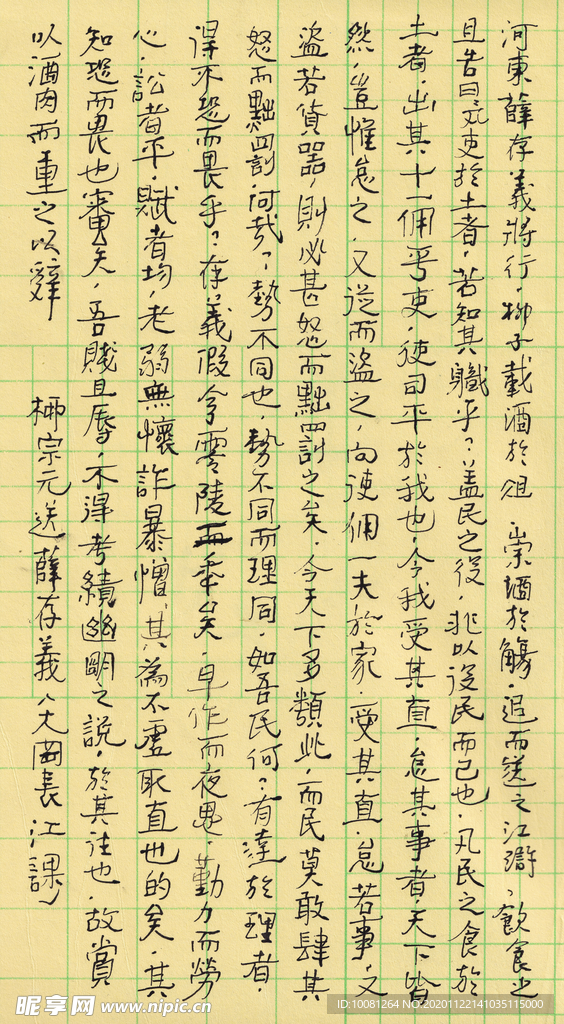 河東薛存義將行，柳子載酒於俎，崇酒於觴，追而送之江滸，飲食之
且告曰凡吏於土者，若知其職乎？蓋民之役，非以役民而已也，凡民之食於
土者，出其十一傭乎吏，使司平於我也，今我受其直，怠其事者，天下皆
然，豈惟怠之，又從而盜之，向使傭一夫於家，受其直，怠若事，又
盜若貨器，則必甚怒而黜罰之矣，今天下多類此，而民莫敢肆其
怒而黜罰，何哉？勢不同也，勢不同而理同，如吾民何？有達於理者，
得不恐而畏乎？存義假令零陵二年矣，早作而夜思，勤力而勞
心，訟者平，賦者均，老弱無懷詐暴憎，其為不虛取直也的矣，其
知恐而畏也審矣，吾賤且辱，不得考績幽明之說，於其往也，故賞
以酒肉而重之以辭
柳宗元送薛存義 八大
長江課
昵享网 www.nipic.cn
ID:10081264 NO:20201122141035115000